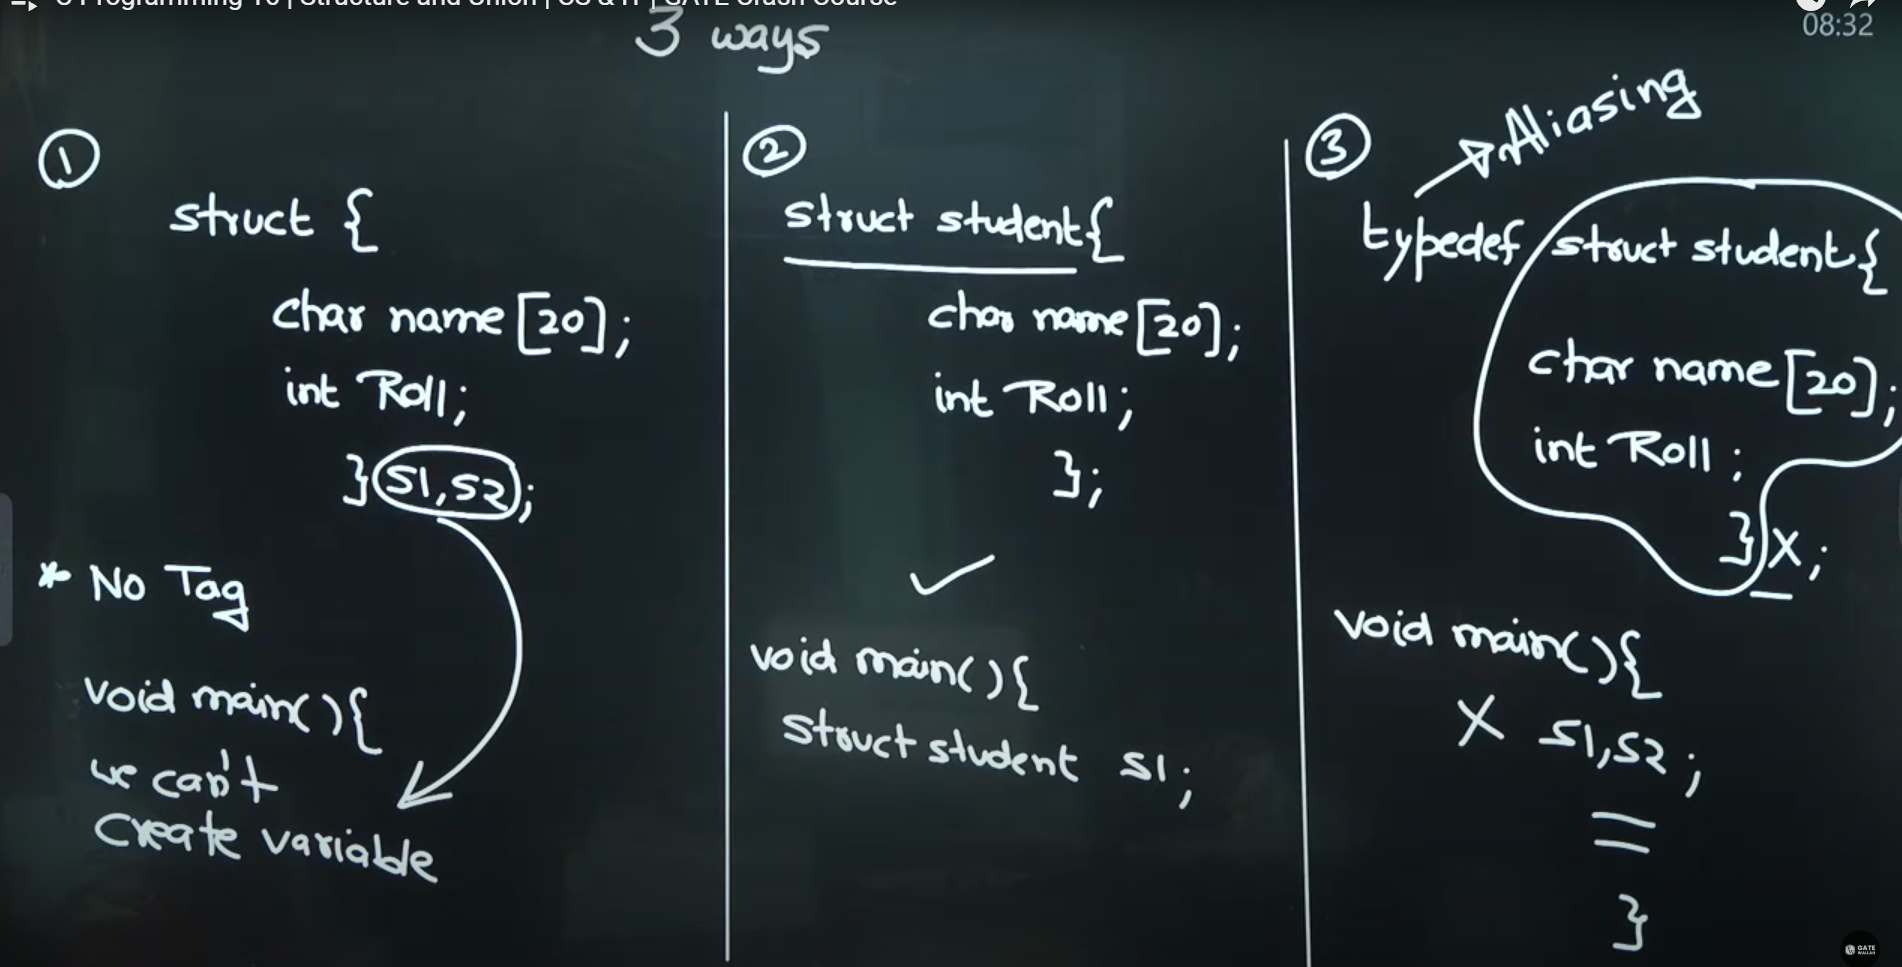 C Programming 10 | Structure and Union | CS & IT | GATE Crash Course
08:32
3 ways
1
struct {
char name [20];
int Roll;
} S1, S2;
* No Tag
void main( ){
we can't
create variable
2
struct student{
char name [20];
int Roll;
};
✓
void main( ){
struct student S1;
3
Aliasing
typedef struct student{
char name [20];
int Roll;
} X;
void main( ){
X S1, S2;
=
}
GATE
WALLAH